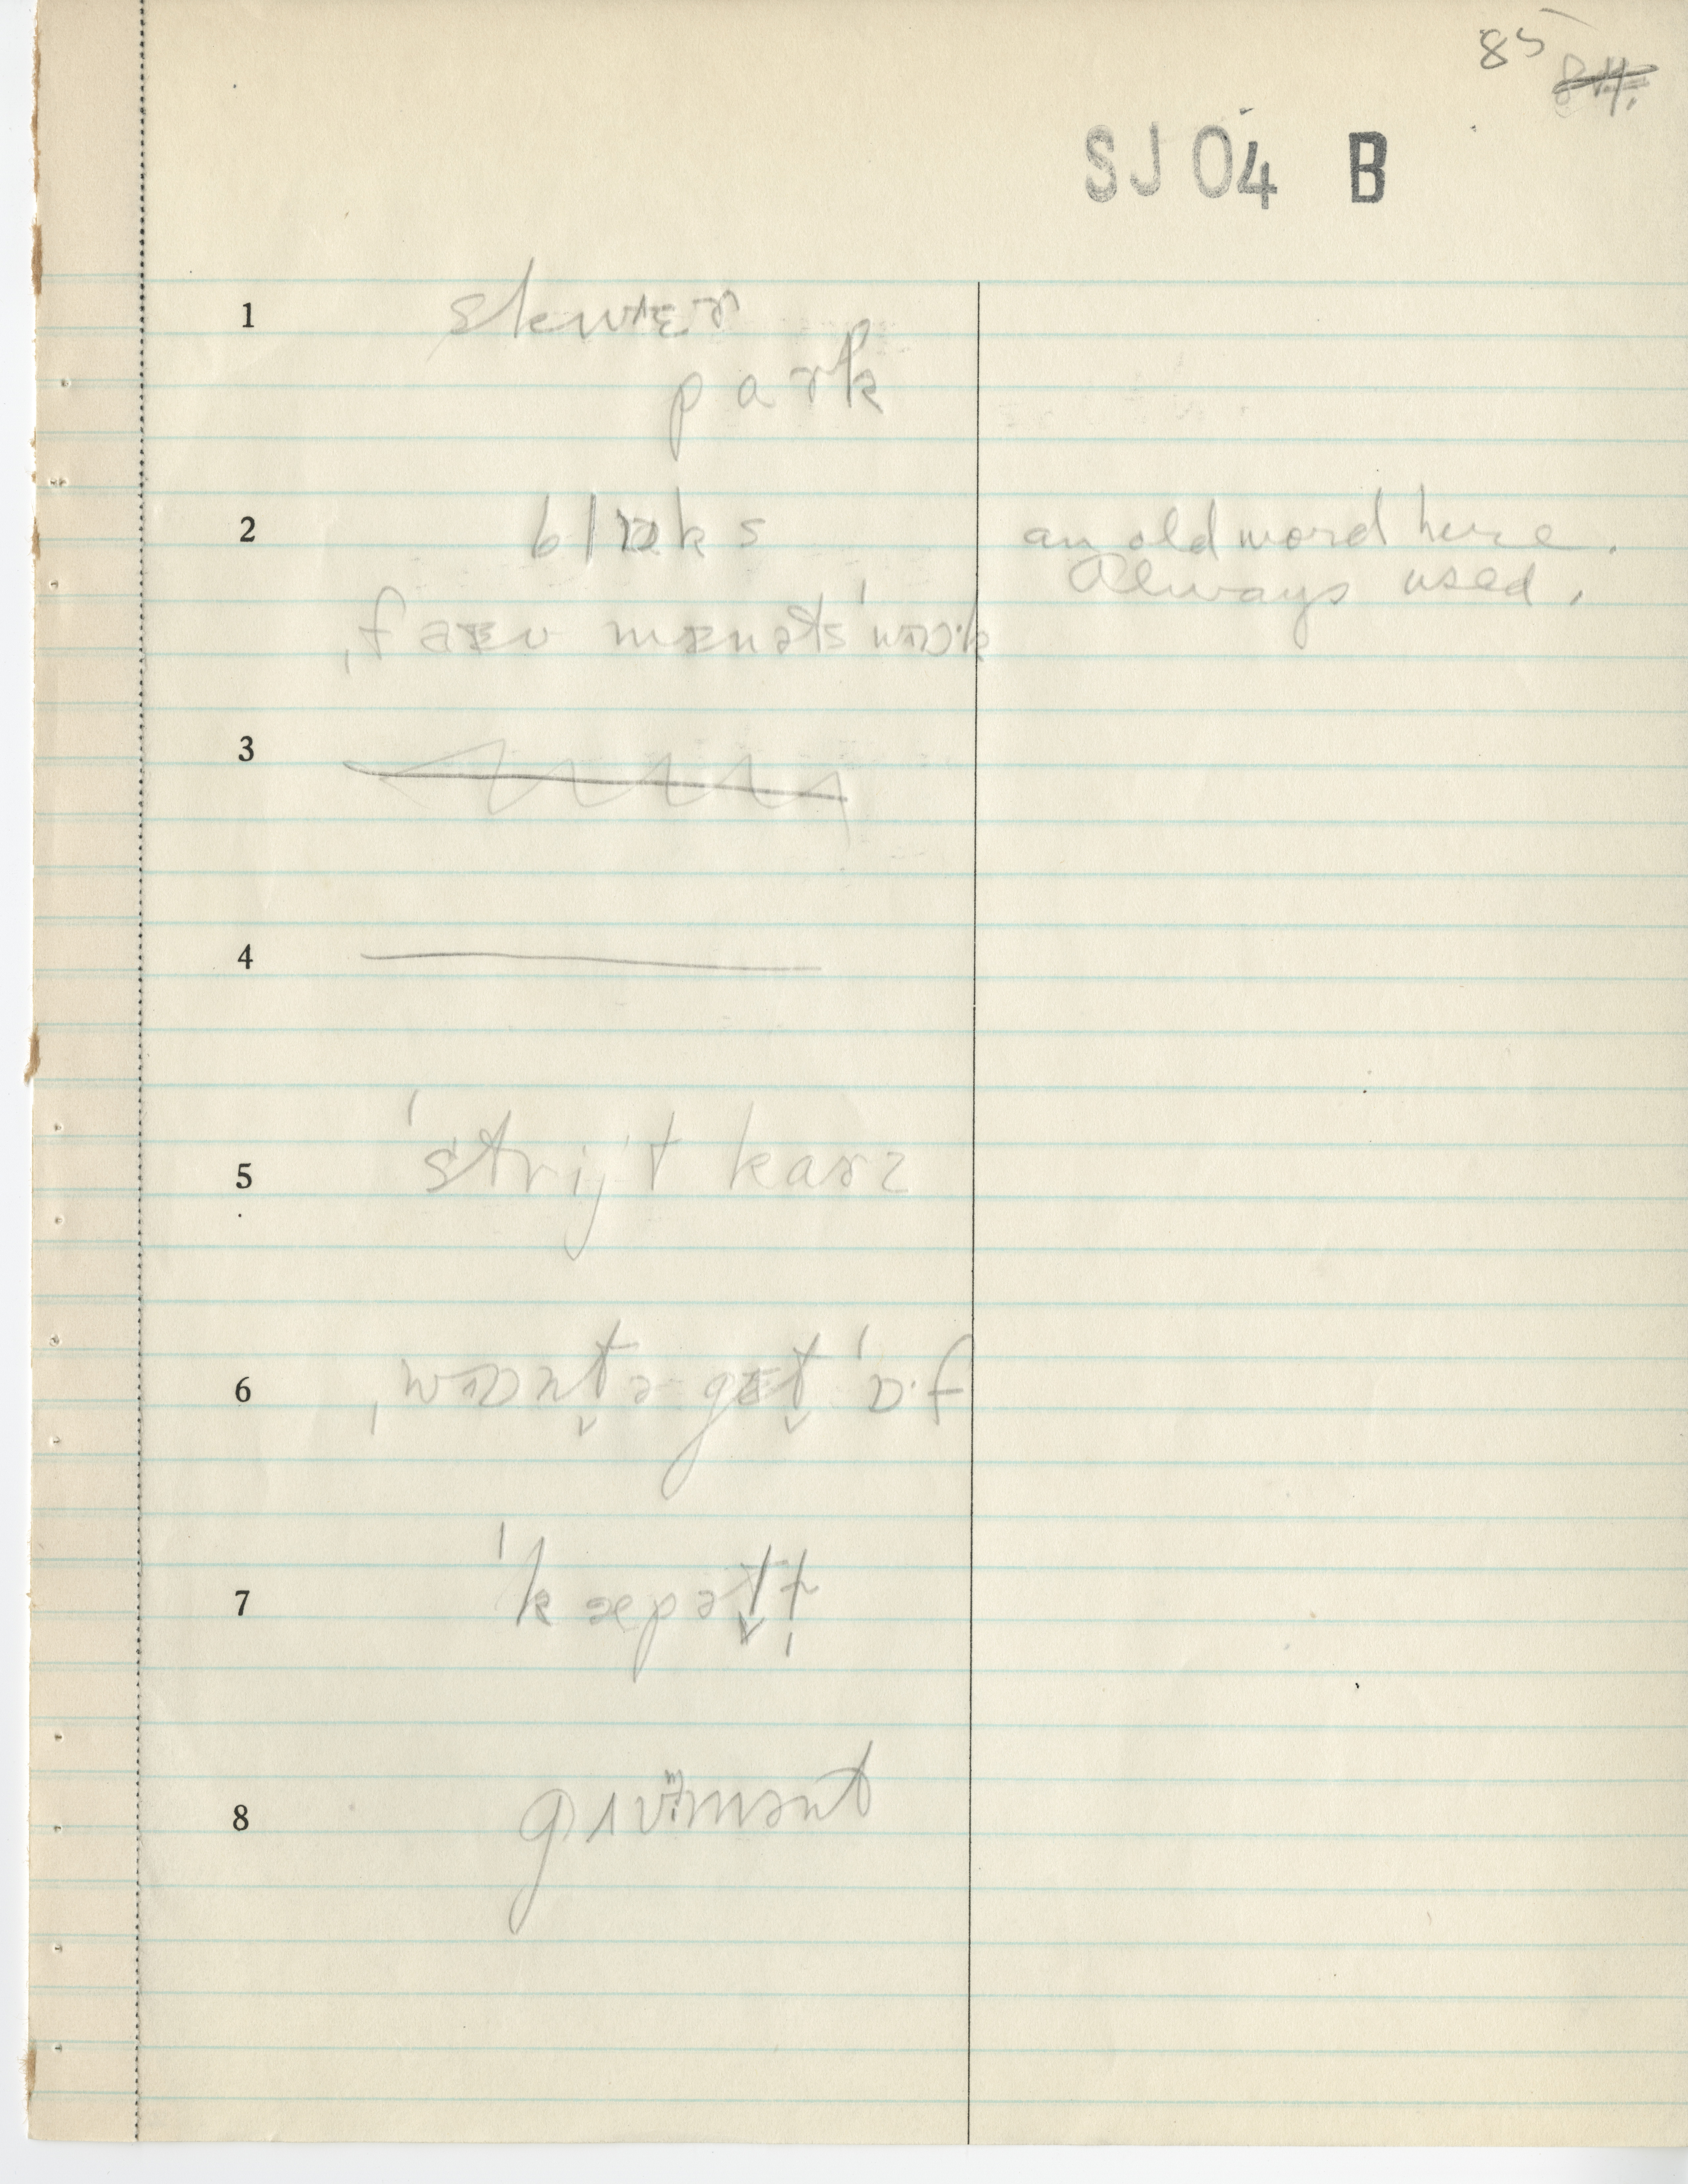 85 84.
SJ04 B
1 skwɛɚ
park
2 blɒks an old word here.
Always used.
ˌfaɛv mɛnəts ˈwɒk
3
4
5 ˈstrijt karz
6 ˌwɒntə gɛt ˈɒ·f
7 ˈkæpətl̩
8 gɪvɚmənt